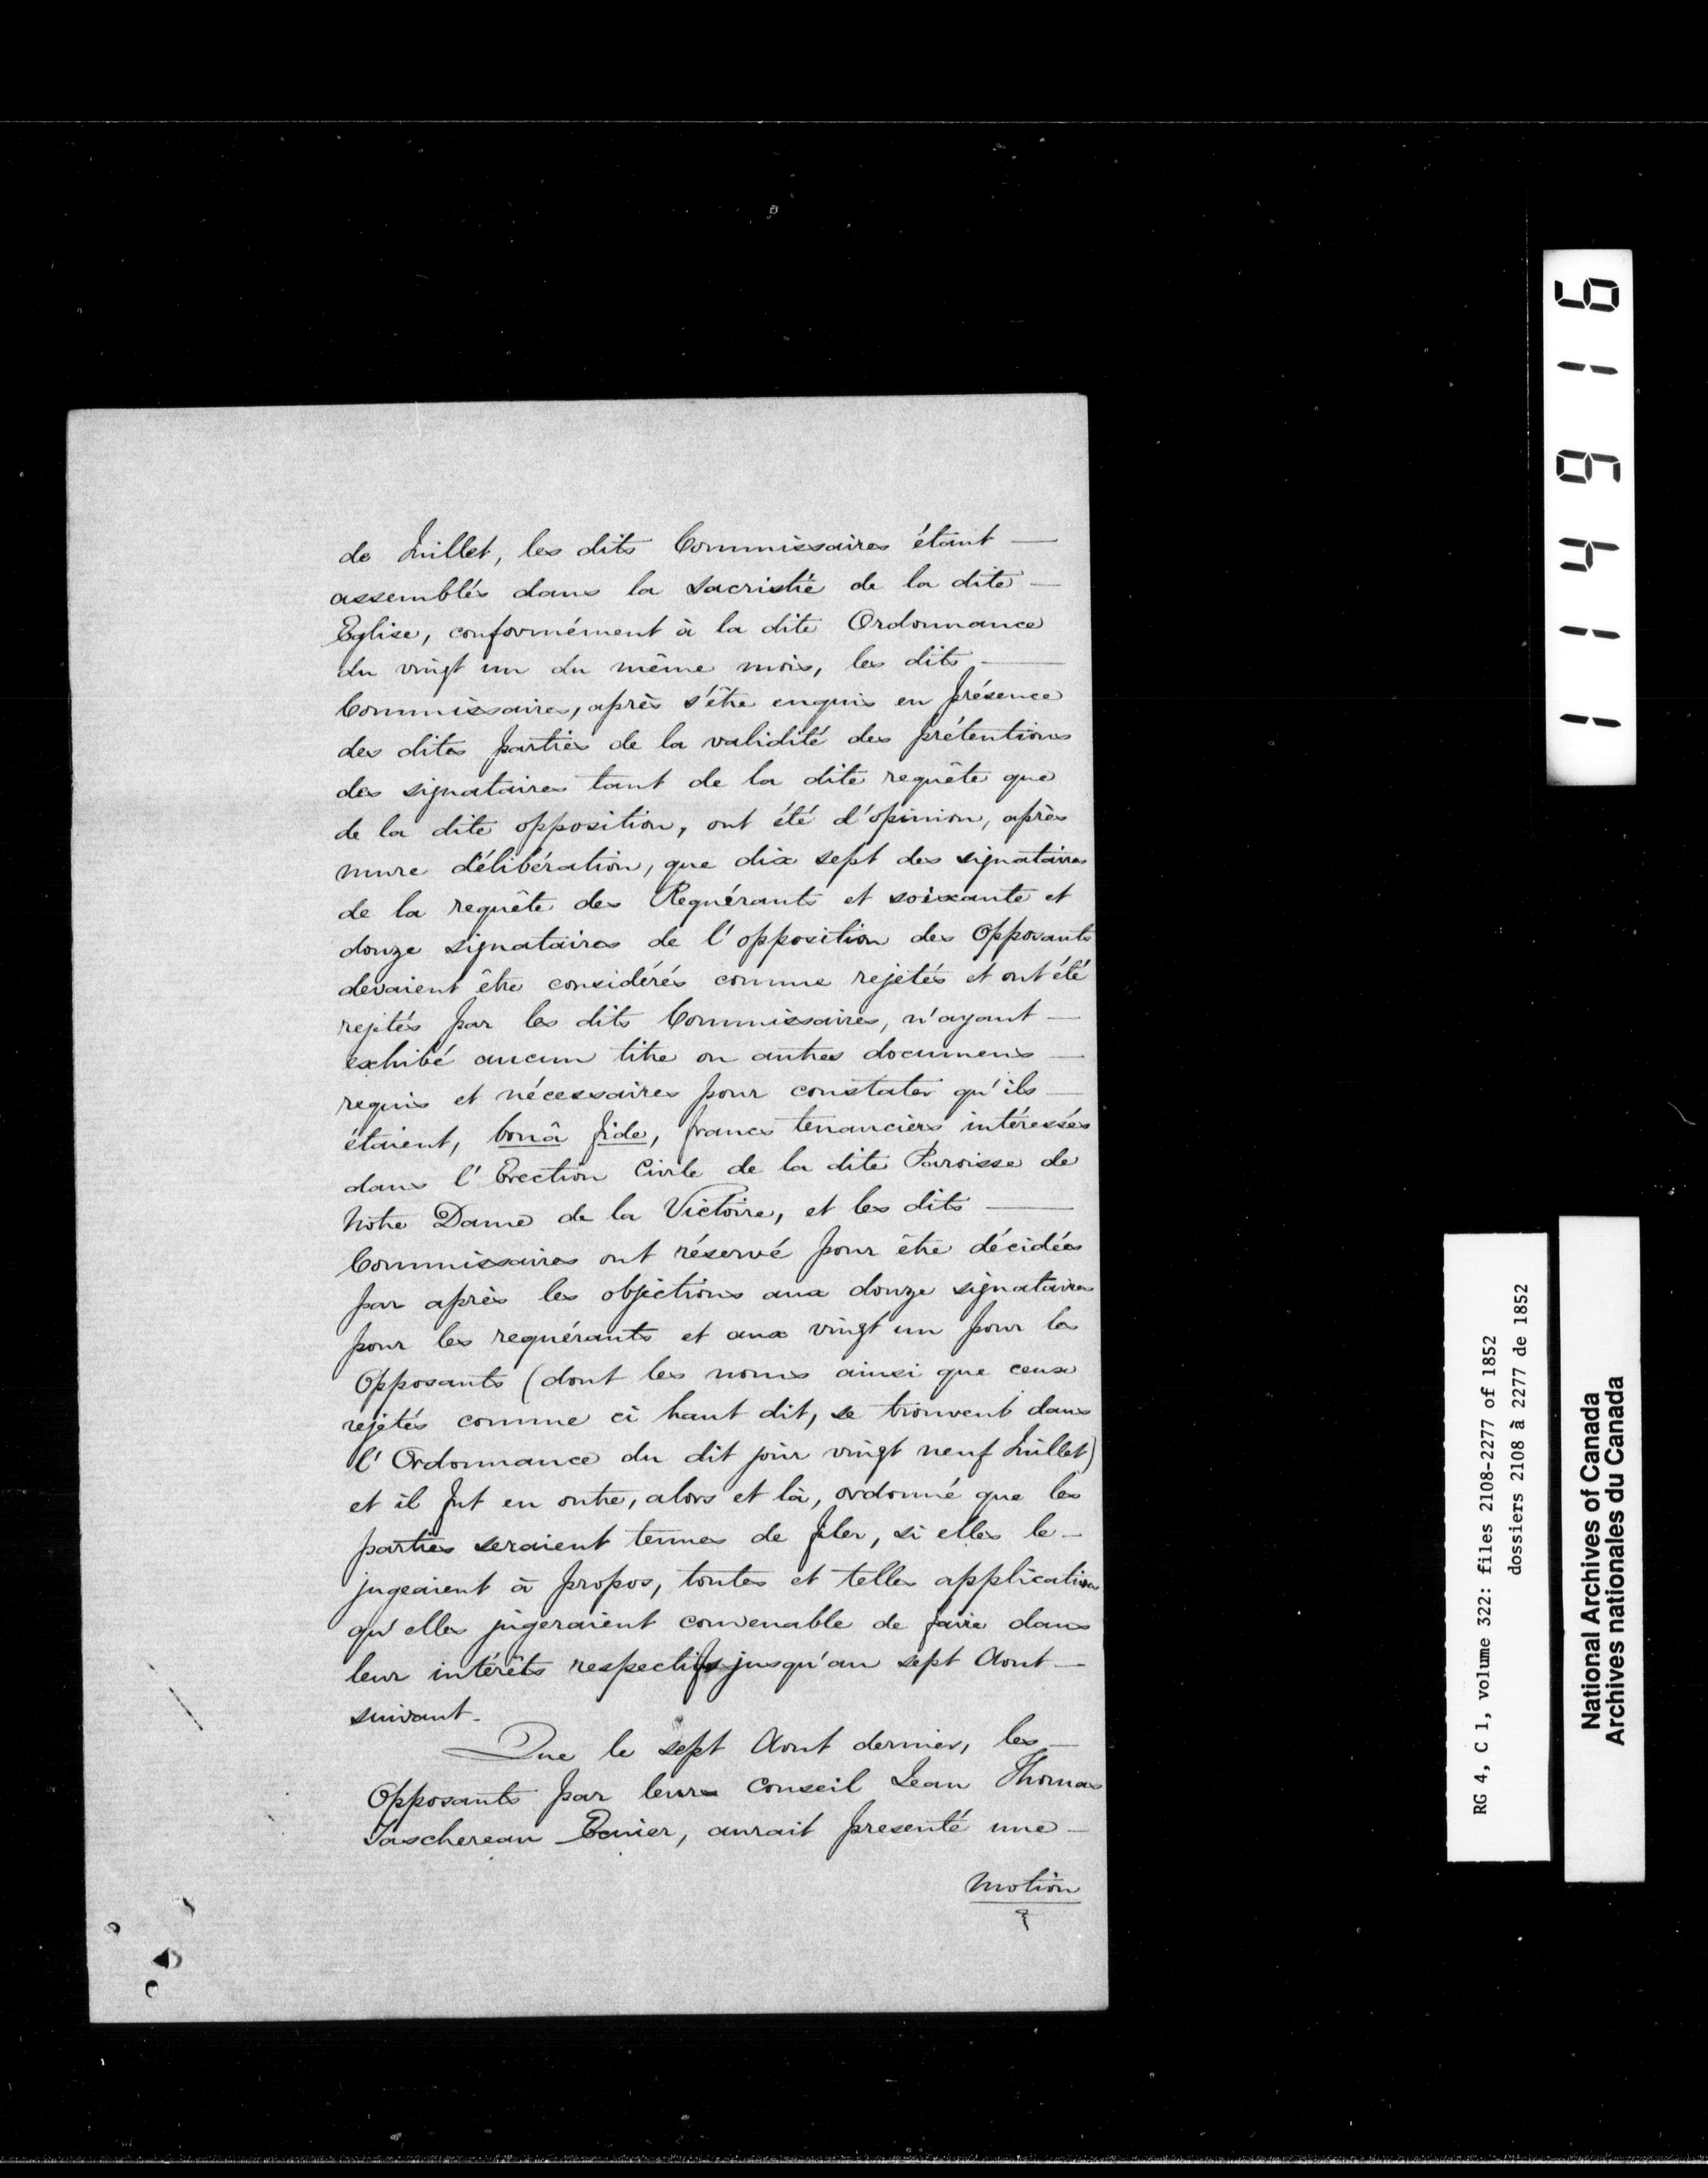 de Juillet, les dits Commissaires étant —
assemblés dans la Sacristie de la dite —
Eglise, conformément à la dite Ordonnance
du vingt un du même mois, les dits —
Commissaires, après s'être enquis en présence
des dites parties de la validité des prétentions
des signataires tant de la dite requête que
de la dite opposition, ont été d'opinion, après
mure délibération, que dix sept des signataires
de la requête des Requérants et soixante et
douze signataires de l'opposition des Opposants
devaient être considérés comme rejetés et ont été
rejetés par les dits Commissaires, n'ayant —
exhibé aucun titre ou autres documens —
requis et nécessaires pour constater qu'ils —
étaient, bonâ fide, francs tenanciers intéressés
dans l'Erection Civile de la dite Paroisse de
Notre Dame de la Victoire, et les dits —
Commissaires ont réservé pour être décidées
par après les objections aux douze signataires
pour les requérants et aux vingt un pour les
Opposants (dont les noms ainsi que ceux
rejetés comme ci haut dit, se trouvent dans
l'Ordonnance du dit jour vingt neuf Juillet)
et il fut en outre, alors et là, ordonné que les
parties seraient tenues de filer, si elles le —
jugeaient à propos, toutes et telles applications
qu'elles jugeraient convenable de faire dans
leur intérêts respectifs jusqu'au sept Aout —
suivant.
Que le sept Aout dernier, les —
Opposants par leurs Conseil Jean Thomas
Taschereau Ecuier, aurait presenté une —
Motion
114916
RG 4, C 1, volume 322: files 2108-2277 of 1852
dossiers 2108 à 2277 de 1852
National Archives of Canada
Archives nationales du Canada